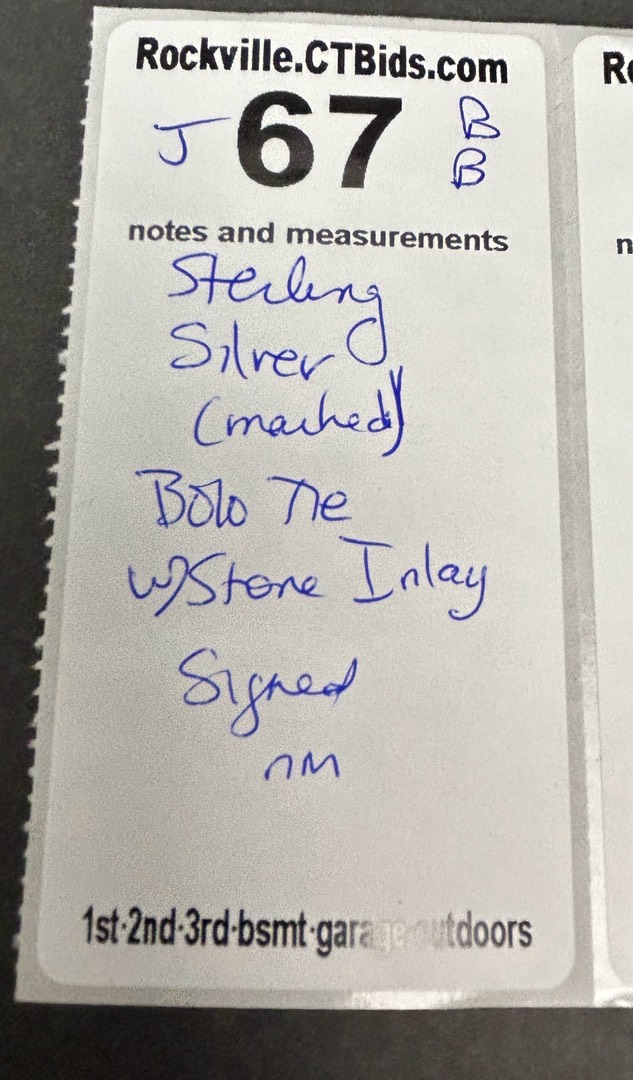 Rockville.CTBids.com
J 67 B
B
notes and measurements
Sterling
Silver
(marked)
Bolo Tie
w/Stone Inlay
Signed
nM
1st·2nd·3rd·bsmt·garage·outdoors